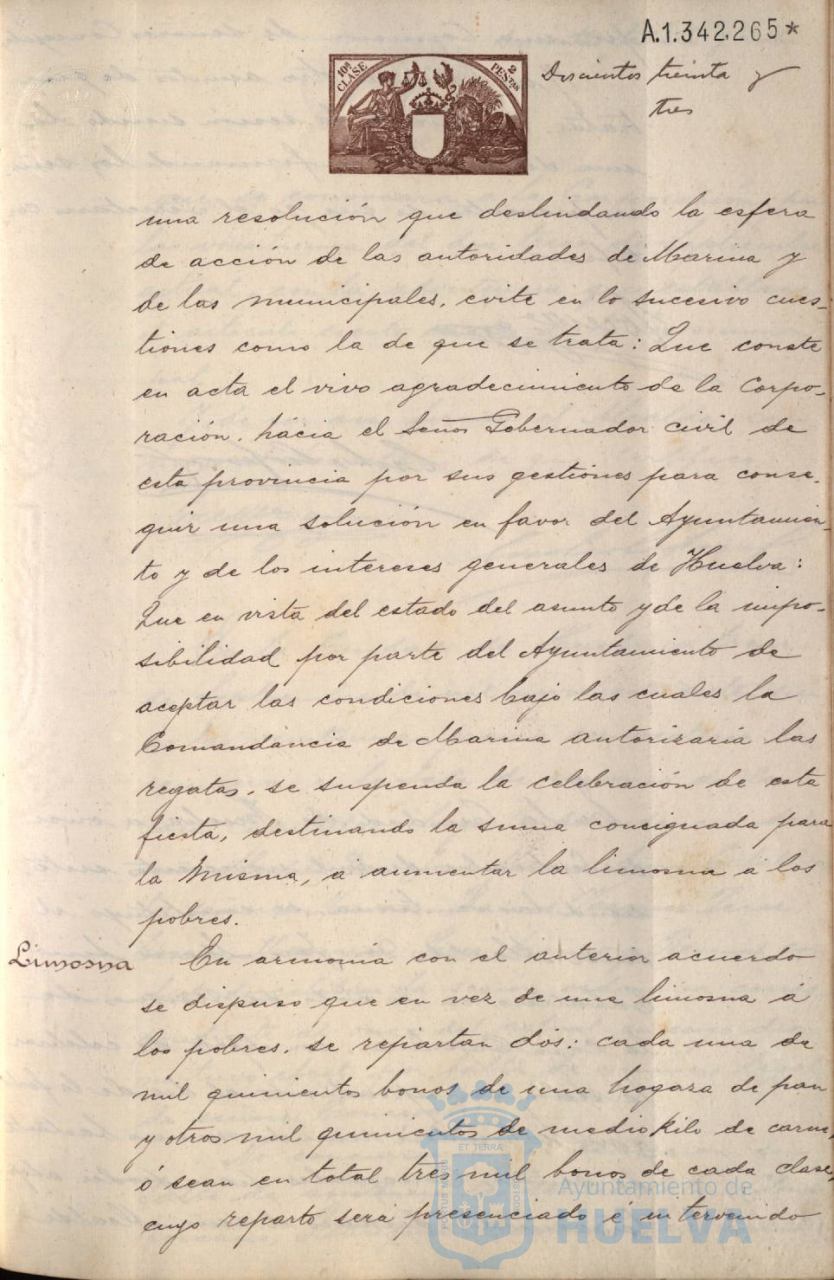 A.1.342.265*
10ª CLASE
2 PESETAS
Doscientos treinta y
tres
una resolución que deslindando la esfera
de acción de las autoridades de Marina y
de las municipales, evite en lo sucesivo cues-
tiones como la de que se trata: Que conste
en acta el vivo agradecimiento de la Corpo-
ración, hácia el Señor Gobernador civil de
esta provincia por sus gestiones para conse-
guir una solución en favor del Ayuntamien-
to y de los intereses generales de Huelva:
Que en vista del estado del asunto y de la impo-
sibilidad por parte del Ayuntamiento de
aceptar las condiciones bajo las cuales la
Comandancia de Marina autorizaria las
regatas, se suspenda la celebración de esta
fiesta, destinando la suma consignada para
la misma, á aumentar la limosna á los
pobres.
Limosna
En armonia con el anterior acuerdo
se dispuso que en vez de una limosna á
los pobres, se repartan dos: cada una de
mil quinientos bonos de una hogaza de pan
y otros mil quinientos de medio kilo de carne,
ó sean en total tres mil bonos de cada clase,
cuyo reparto será presenciado é intervenido
ET TERRA
Ayuntamiento de
HUELVA